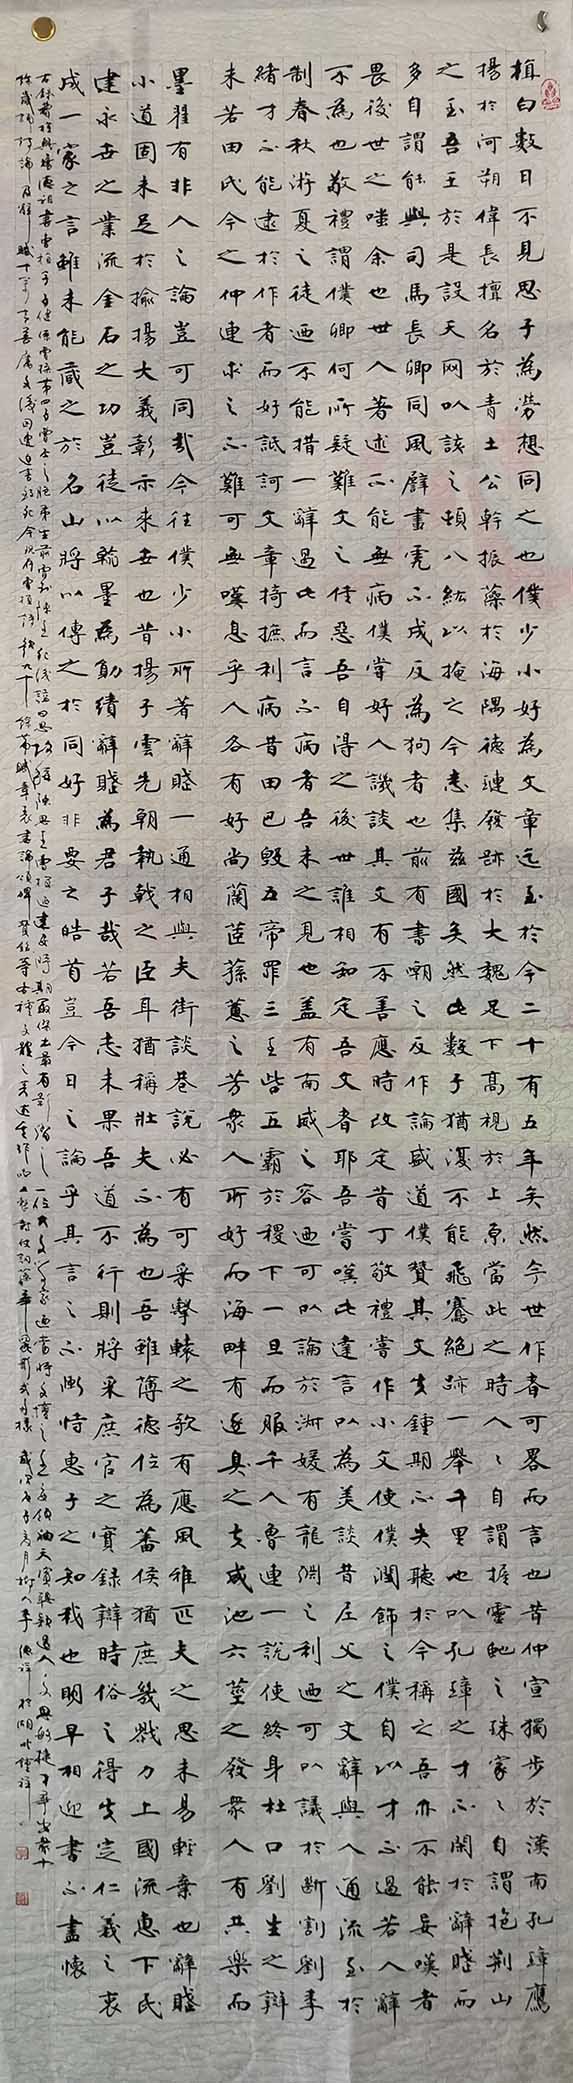 植白數日不見思子為勞想同之也僕少小好為文章迄至於今二十有五年矣然今世作者可畧而言也昔仲宣獨步於漢南孔璋鷹
揚於河朔偉長擅名於青土公幹振藻於海隅德璉發跡於大魏足下高視於上京當此之時人人自謂握靈蛇之珠家家自謂抱荊山
之玉吾王於是設天网以該之頓八紘以掩之今悉集茲國矣然此數子猶復不能飛騫絕跡一舉千里也以孔璋之才不閑於辭賦而
多自謂能與司馬長卿同風譬畫虎不成反為狗者也前有書嘲之反作論盛道僕贊其文夫鍾期不失聽於今稱之吾亦不能妄嘆者
畏後世之嗤余也世人著述不能無病僕嘗好人譏談其文有不善應時改定昔丁敬禮嘗作小文使僕潤飾之僕自以才不過若人辭
不為也敬禮謂僕卿何所疑難文之佳惡吾自得之後世誰相知定吾文者耶吾嘗嘆此達言以為美談昔尼父之文辭與人通流至於
制春秋游夏之徒迺不能措一辭過此而言不病者吾未之見也蓋有南威之容迺可以論於淑媛有龍淵之利迺可以議於斷割劉季
緒才不能逮於作者而好詆訶文章掎摭利病昔田巴毀五帝罪三王呰五霸於稷下一旦而服千人魯連一說使終身杜口劉生之辯
未若田氏今之仲連求之不難可無嘆息乎人各有好尚蘭茝蓀蕙之芳眾人所好而海畔有逐臭之夫咸池六莖之發眾人有共樂而
墨翟有非人之論豈可同哉今往僕少小所著辭賦一通相與夫街談巷說必有可采擊轅之歌有應風雅匹夫之思未易輕棄也辭賦
小道固未足於揄揚大義彰示來世也昔揚子雲先朝執戟之臣耳猶稱壯夫不為也吾雖薄德位為蕃侯猶庶幾戮力上國流惠下民
建永世之業流金石之功豈徒以翰墨為勛績辭賦為君子哉若吾志未果吾道不行則將采庶官之實錄辯時俗之得失定仁義之衷
成一家之言雖未能藏之於名山將以傳之於同好非要之皓首豈今日之論乎其言之不慚恃惠子之知我也明早相迎書不盡懷